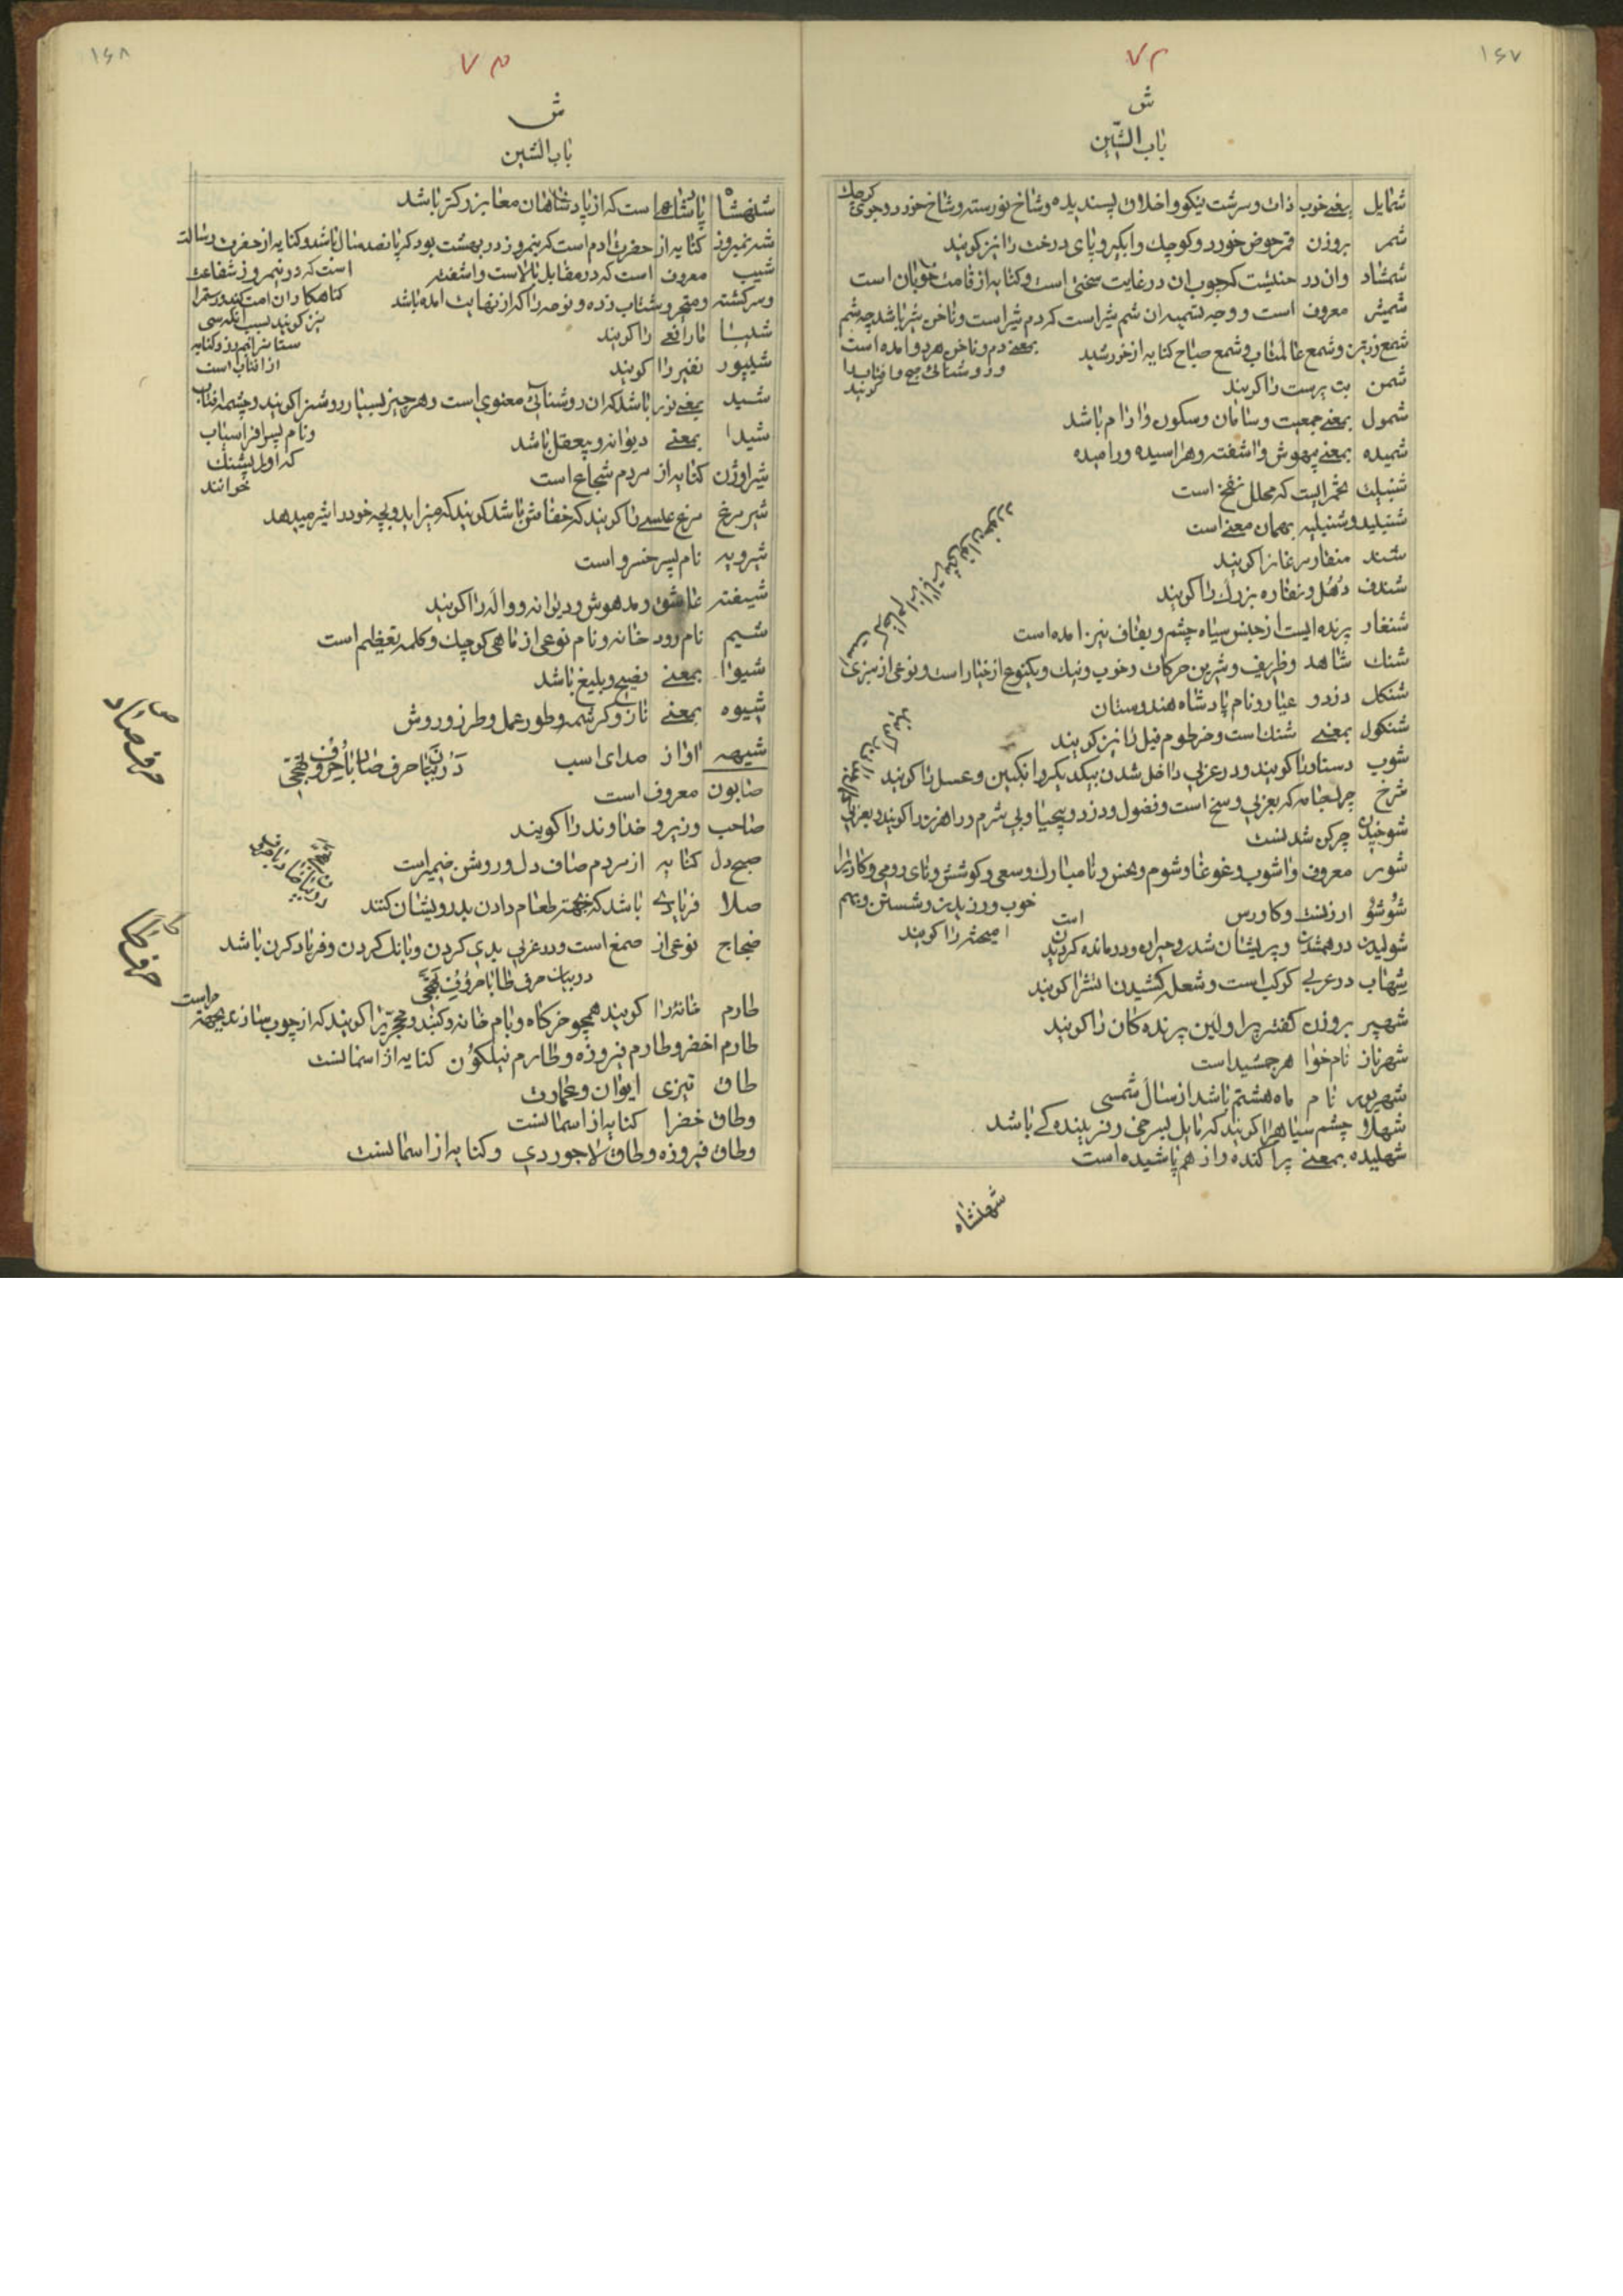 ۱۶۷
۷۲
ش
باب الشین
شمایل بمعنے خوب ذات و سرشت نیکو و اخلاق پسندیده و شاخ نورسته و شاخ خورد و جوی کوچك
شمر بروزن قمر حوض خورد و کوچك و ابگیر و پای درخت را نیز کویند
شمشاد وان درختیست که چوب ان در غایت سختی است و کنایه از قامت خوبان است
شمشیر معروف است و وجه تسمیه ان شم شیر است که دم شیر است و ناخن شیر باشد چه شم
بمعنے دم و ناخن هر دو امده است
شمع زرین و شمع عالمتاب و شمع صباح کنایه از خورشید
و روشنائی صبح و افتاب را کویند
شمن بت پرست را کویند
شمول بمعنے جمعیت و سامان و سکون و ارام باشد
شمیده بمعنے بیهوش و اشفته و هراسیده و رمیده
شنبلیت تخمرایست که محلل نفخ است
شنبلید و شنبلیه بهمان معنے است
شند منقار مرغان را کویند
شندف دهل و نقاره بزرك را کویند
شنغار پرنده ایست از جنس سیاه چشم و بقاف نیز امده است
شنك شاهد و ظریف و شیرین حرکات و خوب و نیك و یکنوع از خیار است و نوعی از سبزی
شنکل دزد و عیار و نام پادشاه هندوستان
شنکول بمعنے شنك است و خرطوم فیل را نیز کویند
شوب دستار را کویند و در عربی داخل شدن بیکدیکر و انکبین و عسل را کویند
شوخ چرك جامه که بعربی وسخ است و فضول و دزد و بیحیا و بی شرم و راهزن را کویند و بعربی
شوخیدن چرکن شدنست
شور معروف و اشوب و غوغا و شوم و نحس و نامبارك و سعی و کوشش و نای رومی و کارزار
خوب ورزیدن و شستن و بهم
شوشو ارزنست و کاورس است
امیختن را کویند
شولیدن درهمشدن و پریشان شدن و حیران و درمانده کردیدن
شهاب در عربی کوکب است و شعله کشیدن اتش را کویند
شهپر بروزن کفتر پر اولین پرنده کان را کویند
شهرناز نام خواهر جمشید است
شهریور نام ماه هشتم باشد از سال شمسی
شهلا و چشم سیاه را کویند که مایل بسرخی و فریبنده کے باشد
شهلیده بمعنے پراکنده و از هم پاشیده است
شهنشاه
۱۶۸
۷۳
ش
باب الشین
شنهشاه پادشاهی است که از پادشاهان معا بزرکتر باشد
شه نیمروز کنایه از حضرت ادم است که نیمروز در بهشت بود که پانصد سال باشد و کنایه از حضرت رسالت
است که در نیمروز شفاعت
شیب معروف است که در مقابل بالا است و اشفته
کناهکاران امت کند و رستم را
و سرکشته و متحیر و شتاب زده و نوحه را که از نهایت امده باشد
نیز کویند بسبب انکه سی
شیبا مار افعی را کویند
ستان نیمروز و کنایه
از افتاب است
شیپور نفیر را کویند
شید بمعنے نور باشد که ان روشنائی معنوی است و هر چیز بسیار روشن را کویند و چشمه افتاب
و نام پسر افراسیاب
شیدا بمعنے دیوانه و بیعقل باشد
که او را پشنك
شیراوژن کنایه از مردم شجاع است
خوانند
شیر مرغ مرغ عیسے را کویند که خفاش باشد کویند که میزاید و بچه خود را شیر میدهد
شیرویه نام پسر خسرو است
شیفته عاشق و مدهوش و دیوانه و واله را کویند
شیم نام رود خانه و نام نوعی از ماهی کوچك و کلمه تعظیم است
شیوا بمعنے فصیح و بلیغ باشد
شیوه بمعنے ناز و کرشمه و طور عمل و طرز و روش
شیهه اواز صدای اسب
در بیان حرف صاد با حروف تهجی
حرف صاد
صابون معروف است
صاحب وزیر و خداوند را کویند
صبح دل کنایه از مردم صاف دل و روشن ضمیر است
صلا فریادی باشد که بجهة طعام دادن بدرویشان کنند
ضجاج نوعی از صمغ است و در عربی بدی کردن و بانك کردن و فریاد کردن باشد
در بیان حرف طا با حروف تهجی
حرف طا
طارم خانه را کویند همچو خرکاه و بام خانه و کنبد و محجری را کویند که از چوب سازند بجهة
طارم اخضر و طارم فیروزه و طارم نیلکون کنایه از اسمانست
طاق تیزی ایوان و عمارت
وطاق خضرا کنایه از اسمانست
وطاق فیروزه و طاق لاجوردی و کنایه از اسمانست